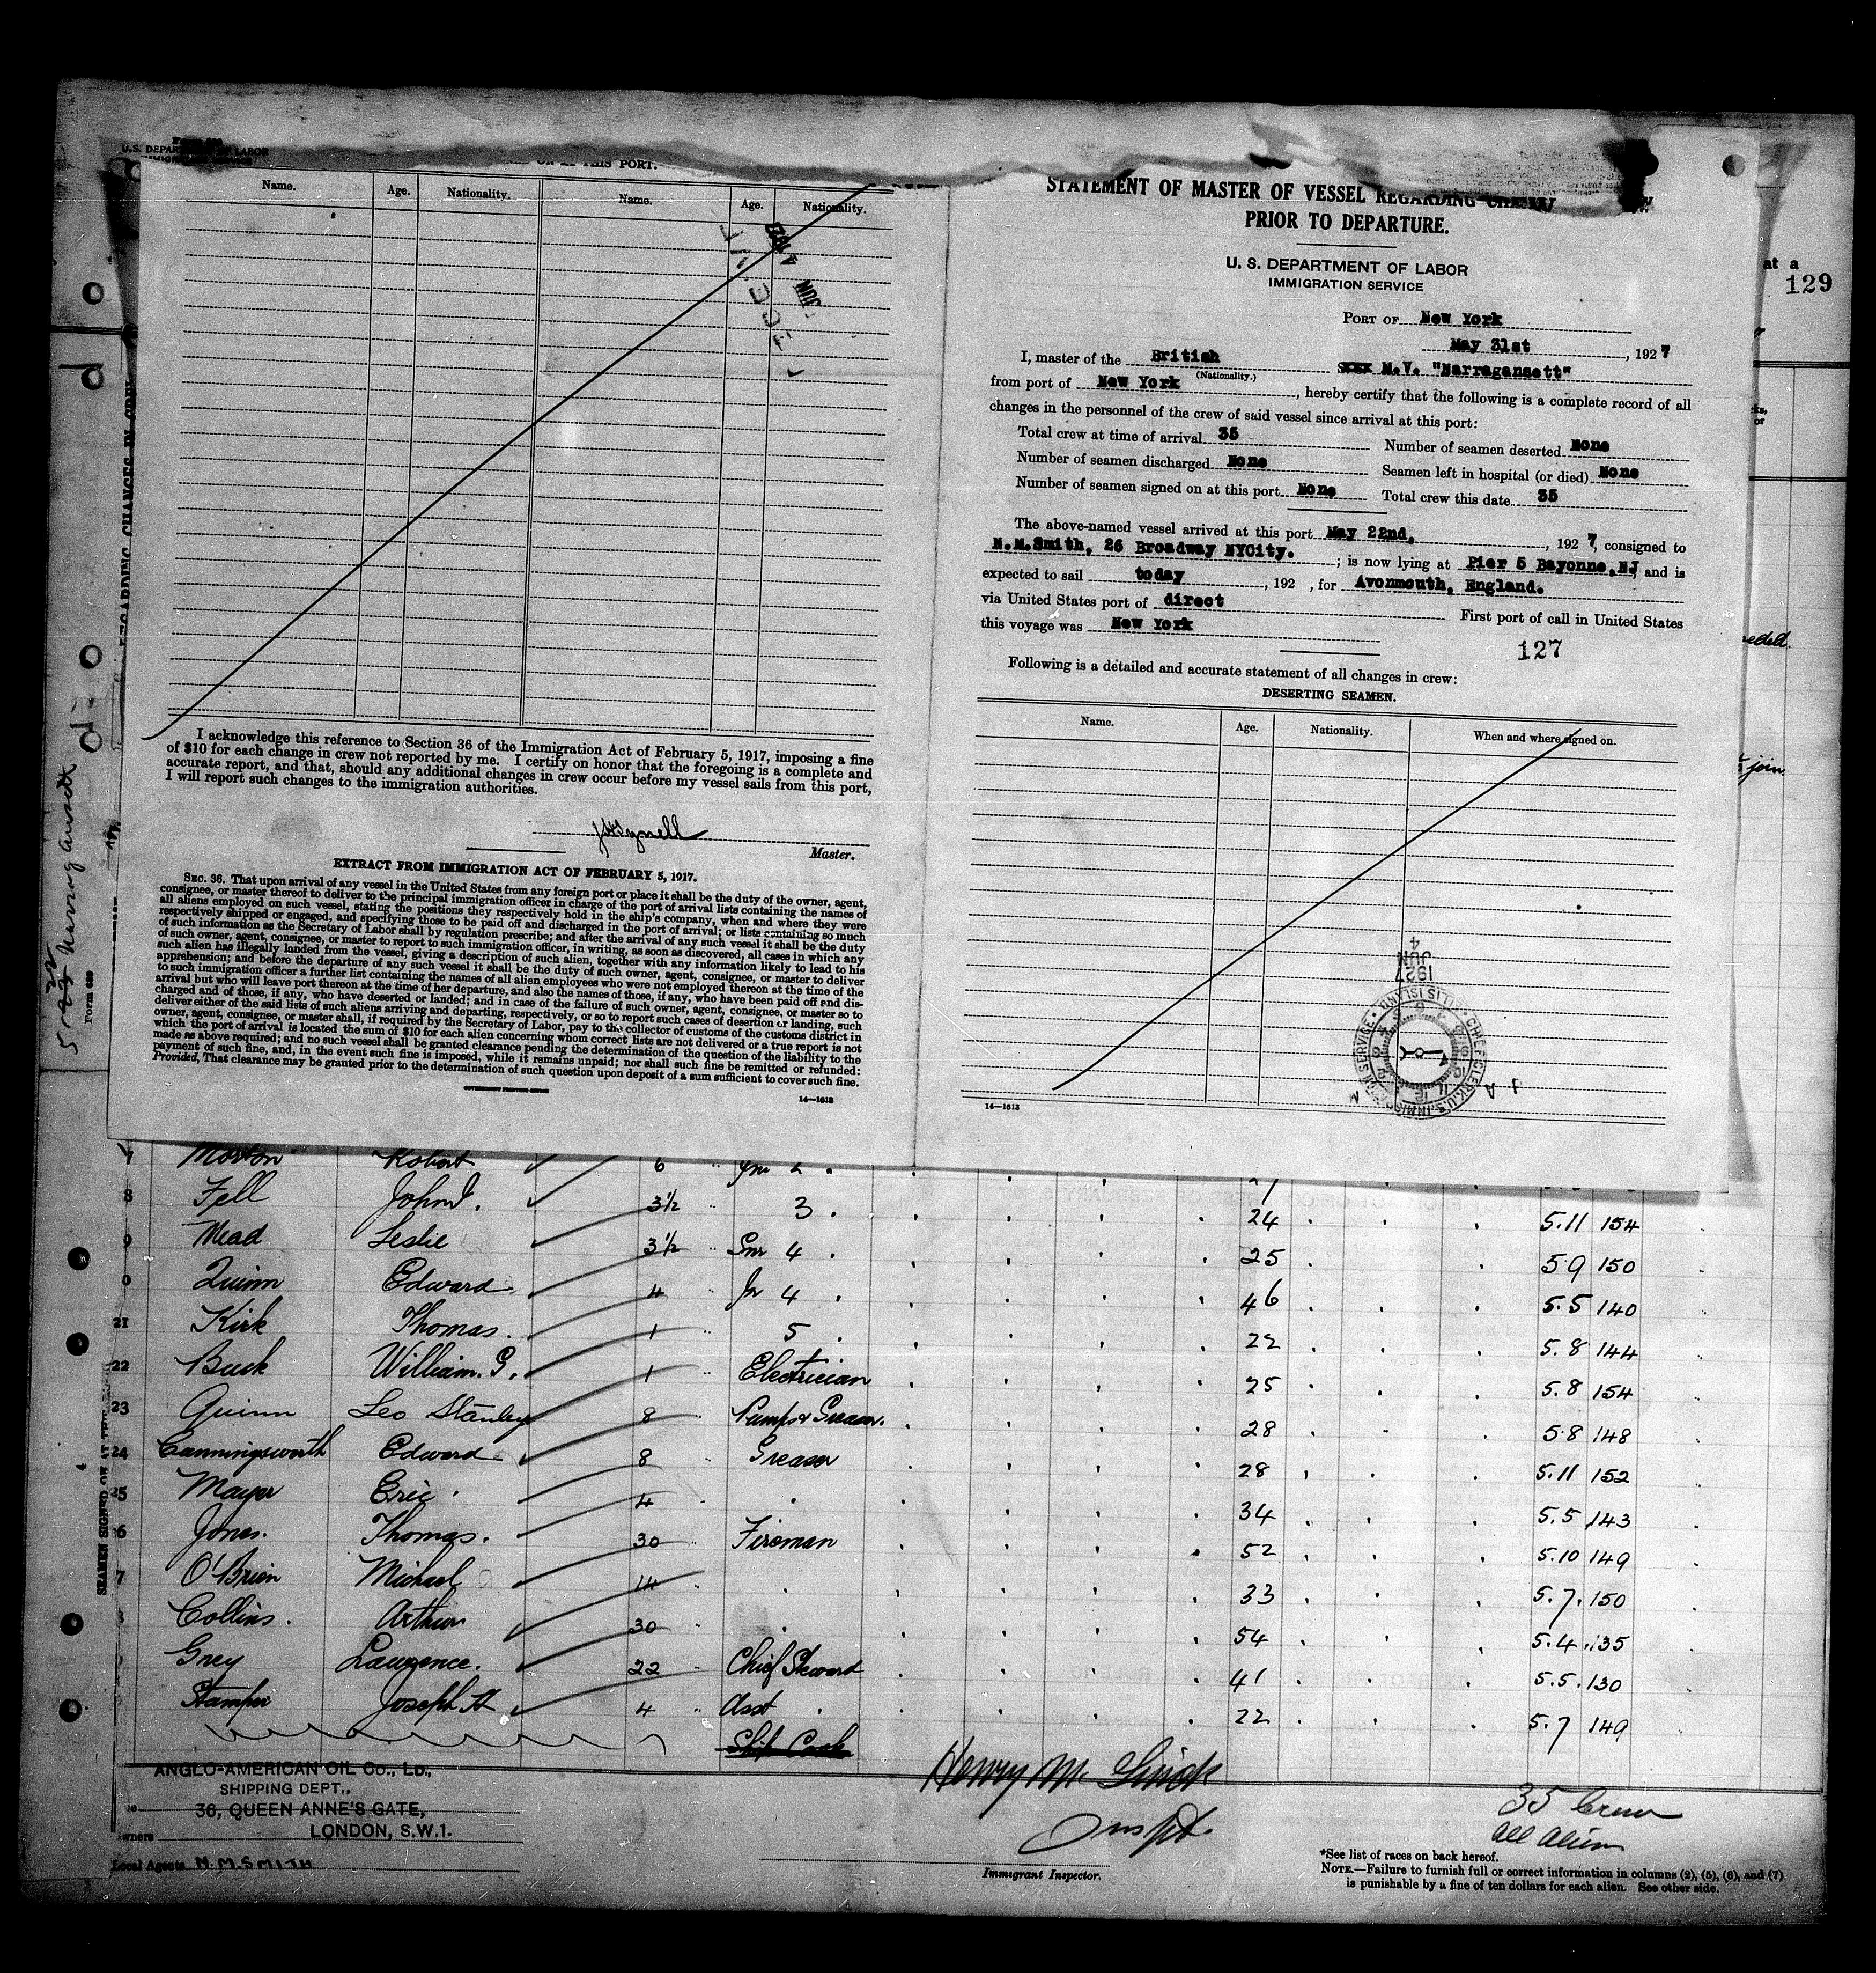 U.S. DEPARTMENT OF LABOR
IMMIGRATION SERVICE
THIS PORT.
Name. Age. Nationality. Name. Age. Nationality.
FILED
JUN 4 1927
I acknowledge this reference to Section 36 of the Immigration Act of February 5, 1917, imposing a fine
of $10 for each change in crew not reported by me. I certify on honor that the foregoing is a complete and
accurate report, and that, should any additional changes in crew occur before my vessel sails from this port,
I will report such changes to the immigration authorities.
Master.
EXTRACT FROM IMMIGRATION ACT OF FEBRUARY 5, 1917.
SEC. 36. That upon arrival of any vessel in the United States from any foreign port or place it shall be the duty of the owner, agent,
consignee, or master thereof to deliver to the principal immigration officer in charge of the port of arrival lists containing the names of
all aliens employed on such vessel, stating the positions they respectively hold in the ship's company, when and where they were
respectively shipped or engaged, and specifying those to be paid off and discharged in the port of arrival; or lists containing so much
of such information as the Secretary of Labor shall by regulation prescribe; and after the arrival of any such vessel it shall be the duty
of such owner, agent, consignee, or master to report to such immigration officer, in writing, as soon as discovered, all cases in which any
such alien has illegally landed from the vessel, giving a description of such alien, together with any information likely to lead to his
apprehension; and before the departure of any such vessel it shall be the duty of such owner, agent, consignee, or master to deliver
to such immigration officer a further list containing the names of all alien employees who were not employed thereon at the time of the
arrival but who will leave port thereon at the time of her departure, and also the names of those, if any, who have been paid off and dis-
charged and of those, if any, who have deserted or landed; and in case of the failure of such owner, agent, consignee, or master so to
deliver either of the said lists of such aliens arriving and departing, respectively, or so to report such cases of desertion or landing, such
owner, agent, consignee, or master shall, if required by the Secretary of Labor, pay to the collector of customs of the customs district in
which the port of arrival is located the sum of $10 for each alien concerning whom correct lists are not delivered or a true report is not
made as above required; and no such vessel shall be granted clearance pending the determination of the question of the liability to the
payment of such fine, and, in the event such fine is imposed, while it remains unpaid; nor shall such fine be remitted or refunded:
Provided, That clearance may be granted prior to the determination of such question upon deposit of a sum sufficient to cover such fine.
GOVERNMENT PRINTING OFFICE
14—1613
STATEMENT OF MASTER OF VESSEL REGARDING
PRIOR TO DEPARTURE.
U. S. DEPARTMENT OF LABOR
IMMIGRATION SERVICE
PORT OF New York
May 31st, 1927
I, master of the British M.V. "Narragansett"
(Nationality.)
from port of New York, hereby certify that the following is a complete record of all
changes in the personnel of the crew of said vessel since arrival at this port:
Total crew at time of arrival 35 Number of seamen deserted None
Number of seamen discharged None Seamen left in hospital (or died) None
Number of seamen signed on at this port None Total crew this date 35
The above-named vessel arrived at this port May 22nd, 1927, consigned to
N.M.Smith, 26 Broadway NYCity. ; is now lying at Pier 5 Bayonne,NJ and is
expected to sail today, 192 , for Avonmouth, England.
via United States port of direct First port of call in United States
this voyage was New York
127
Following is a detailed and accurate statement of all changes in crew:
DESERTING SEAMEN.
Name. Age. Nationality. When and where signed on.
1927
JUN
4
CHIEF CLERK U.S. IMMIGRATION SERVICE ELLIS ISLAND
14—1613
at a
129
join
5-22 Narragansett
REGARDING CHANGES IN CREW
Form 689
SEAMEN SIGNED ON AT THIS
Morton Robert 6
8 Fell John J. 3½ 3 24 5.11 154
9 Mead Leslie 3½ Snr 4 25 5.9 150
0 Quinn Edward 4 Jr 4 46 5.5 140
21 Kirk Thomas. 1 5 22 5.8 144
22 Buck William. G. 1 Electrician 25 5.8 154
23 Quinn Leo Stanley 8 28 5.8 148
24 Canningsworth Edward 8 Greaser 28 5.11 152
25 Mayer Eric 4 34 5.5 143
6 Jones. Thomas. 30 Fireman 52 5.10 149
7 O'Brien Michael 14 33 5.7. 150
Collins. Arthur 30 54 5.4 135
Grey Lawrence. 22 Chief Steward 41 5.5. 130
Stamper Joseph H 4 Asst 22 5.7 149
Ship Cook
ANGLO-AMERICAN OIL Co., LD.,
SHIPPING DEPT.,
36, QUEEN ANNE'S GATE,
LONDON, S.W.1.
Owners
Local Agents N.M.SMITH
Inspt.
Immigrant Inspector.
35 Crew
All Alien
*See list of races on back hereof.
NOTE.—Failure to furnish full or correct information in columns (2), (5), (6), and (7)
is punishable by a fine of ten dollars for each alien. See other side.